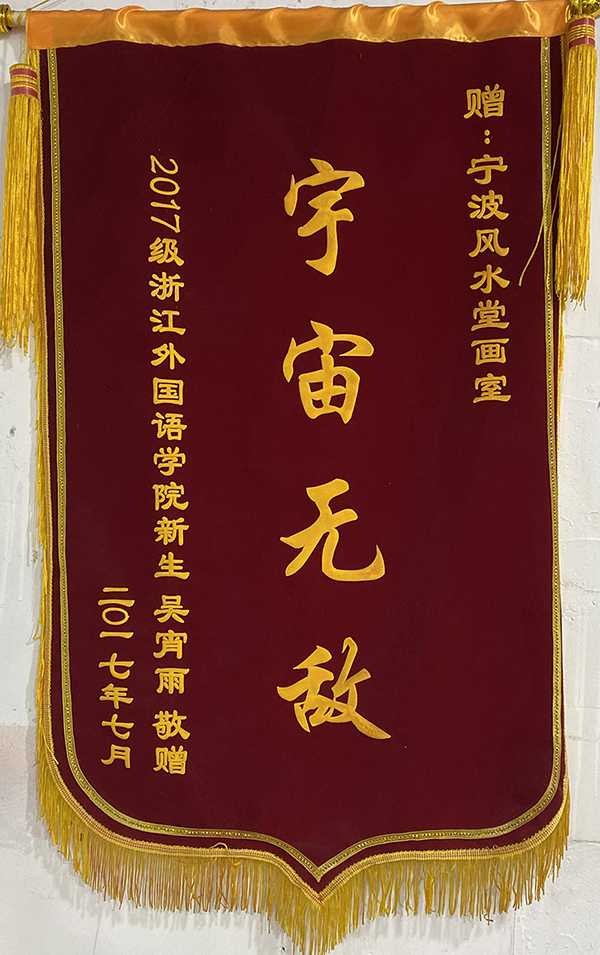 赠：宁波风水堂画室
宇宙无敌
2017级浙江外国语学院新生 吴宵雨 敬赠
二〇一七年七月